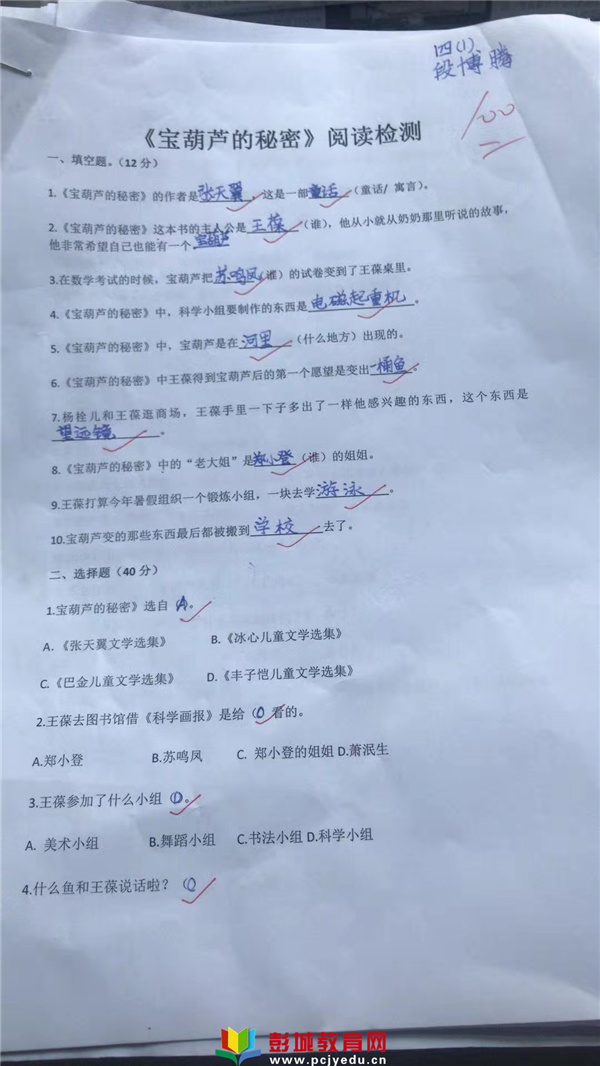 四(1)
段博腾
100
《宝葫芦的秘密》阅读检测
一、填空题。（12 分）
1.《宝葫芦的秘密》的作者是张天翼，这是一部童话（童话/ 寓言）。
2.《宝葫芦的秘密》这本书的主人公是王葆（谁），他从小就从奶奶那里听说的故事，
他非常希望自己也能有一个宝葫芦
3.在数学考试的时候，宝葫芦把苏鸣凤（谁）的试卷变到了王葆桌里。
4.《宝葫芦的秘密》中，科学小组要制作的东西是电磁起重机。
5.《宝葫芦的秘密》中，宝葫芦是在河里（什么地方）出现的。
6.《宝葫芦的秘密》中王葆得到宝葫芦后的第一个愿望是变出一桶鱼。
7.杨栓儿和王葆逛商场，王葆手里一下子多出了一样他感兴趣的东西，这个东西是
望远镜。
8.《宝葫芦的秘密》中的“老大姐”是郑小登（谁）的姐姐。
9.王葆打算今年暑假组织一个锻炼小组，一块去学游泳。
10.宝葫芦变的那些东西最后都被搬到学校去了。
二、选择题（40 分）
1.宝葫芦的秘密》选自（A）。
A.《张天翼文学选集》 B.《冰心儿童文学选集》
C.《巴金儿童文学选集》 D.《丰子恺儿童文学选集》
2.王葆去图书馆借《科学画报》是给（ 看的。
A.郑小登 B.苏鸣凤 C. 郑小登的姐姐 D.萧泯生
3.王葆参加了什么小组（D）。
A. 美术小组 B.舞蹈小组 C.书法小组 D.科学小组
4.什么鱼和王葆说话啦？（
彭城教育网
www.pcjyedu.cn